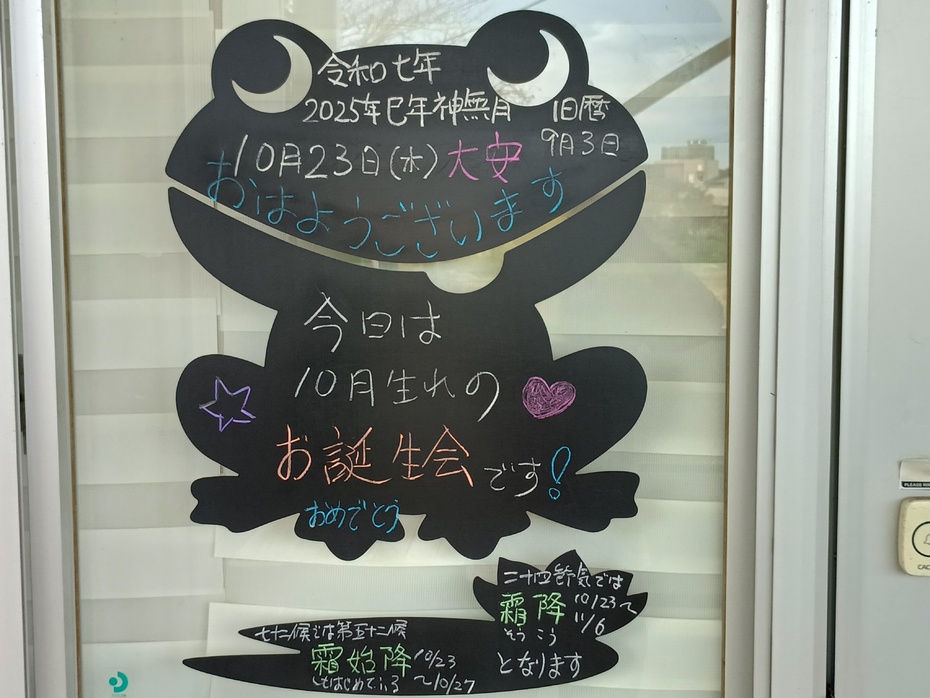 令和七年
2025年巳年神無月
旧暦
9月3日
10月23日(木)大安
おはようございます
今日は
10月生れの
お誕生会です!
おめでとう
二十四節気では
霜降 10/23~11/6
そうこう
となります
七十二候では第五十二候
霜始降 10/23~10/27
しもはじめてふる